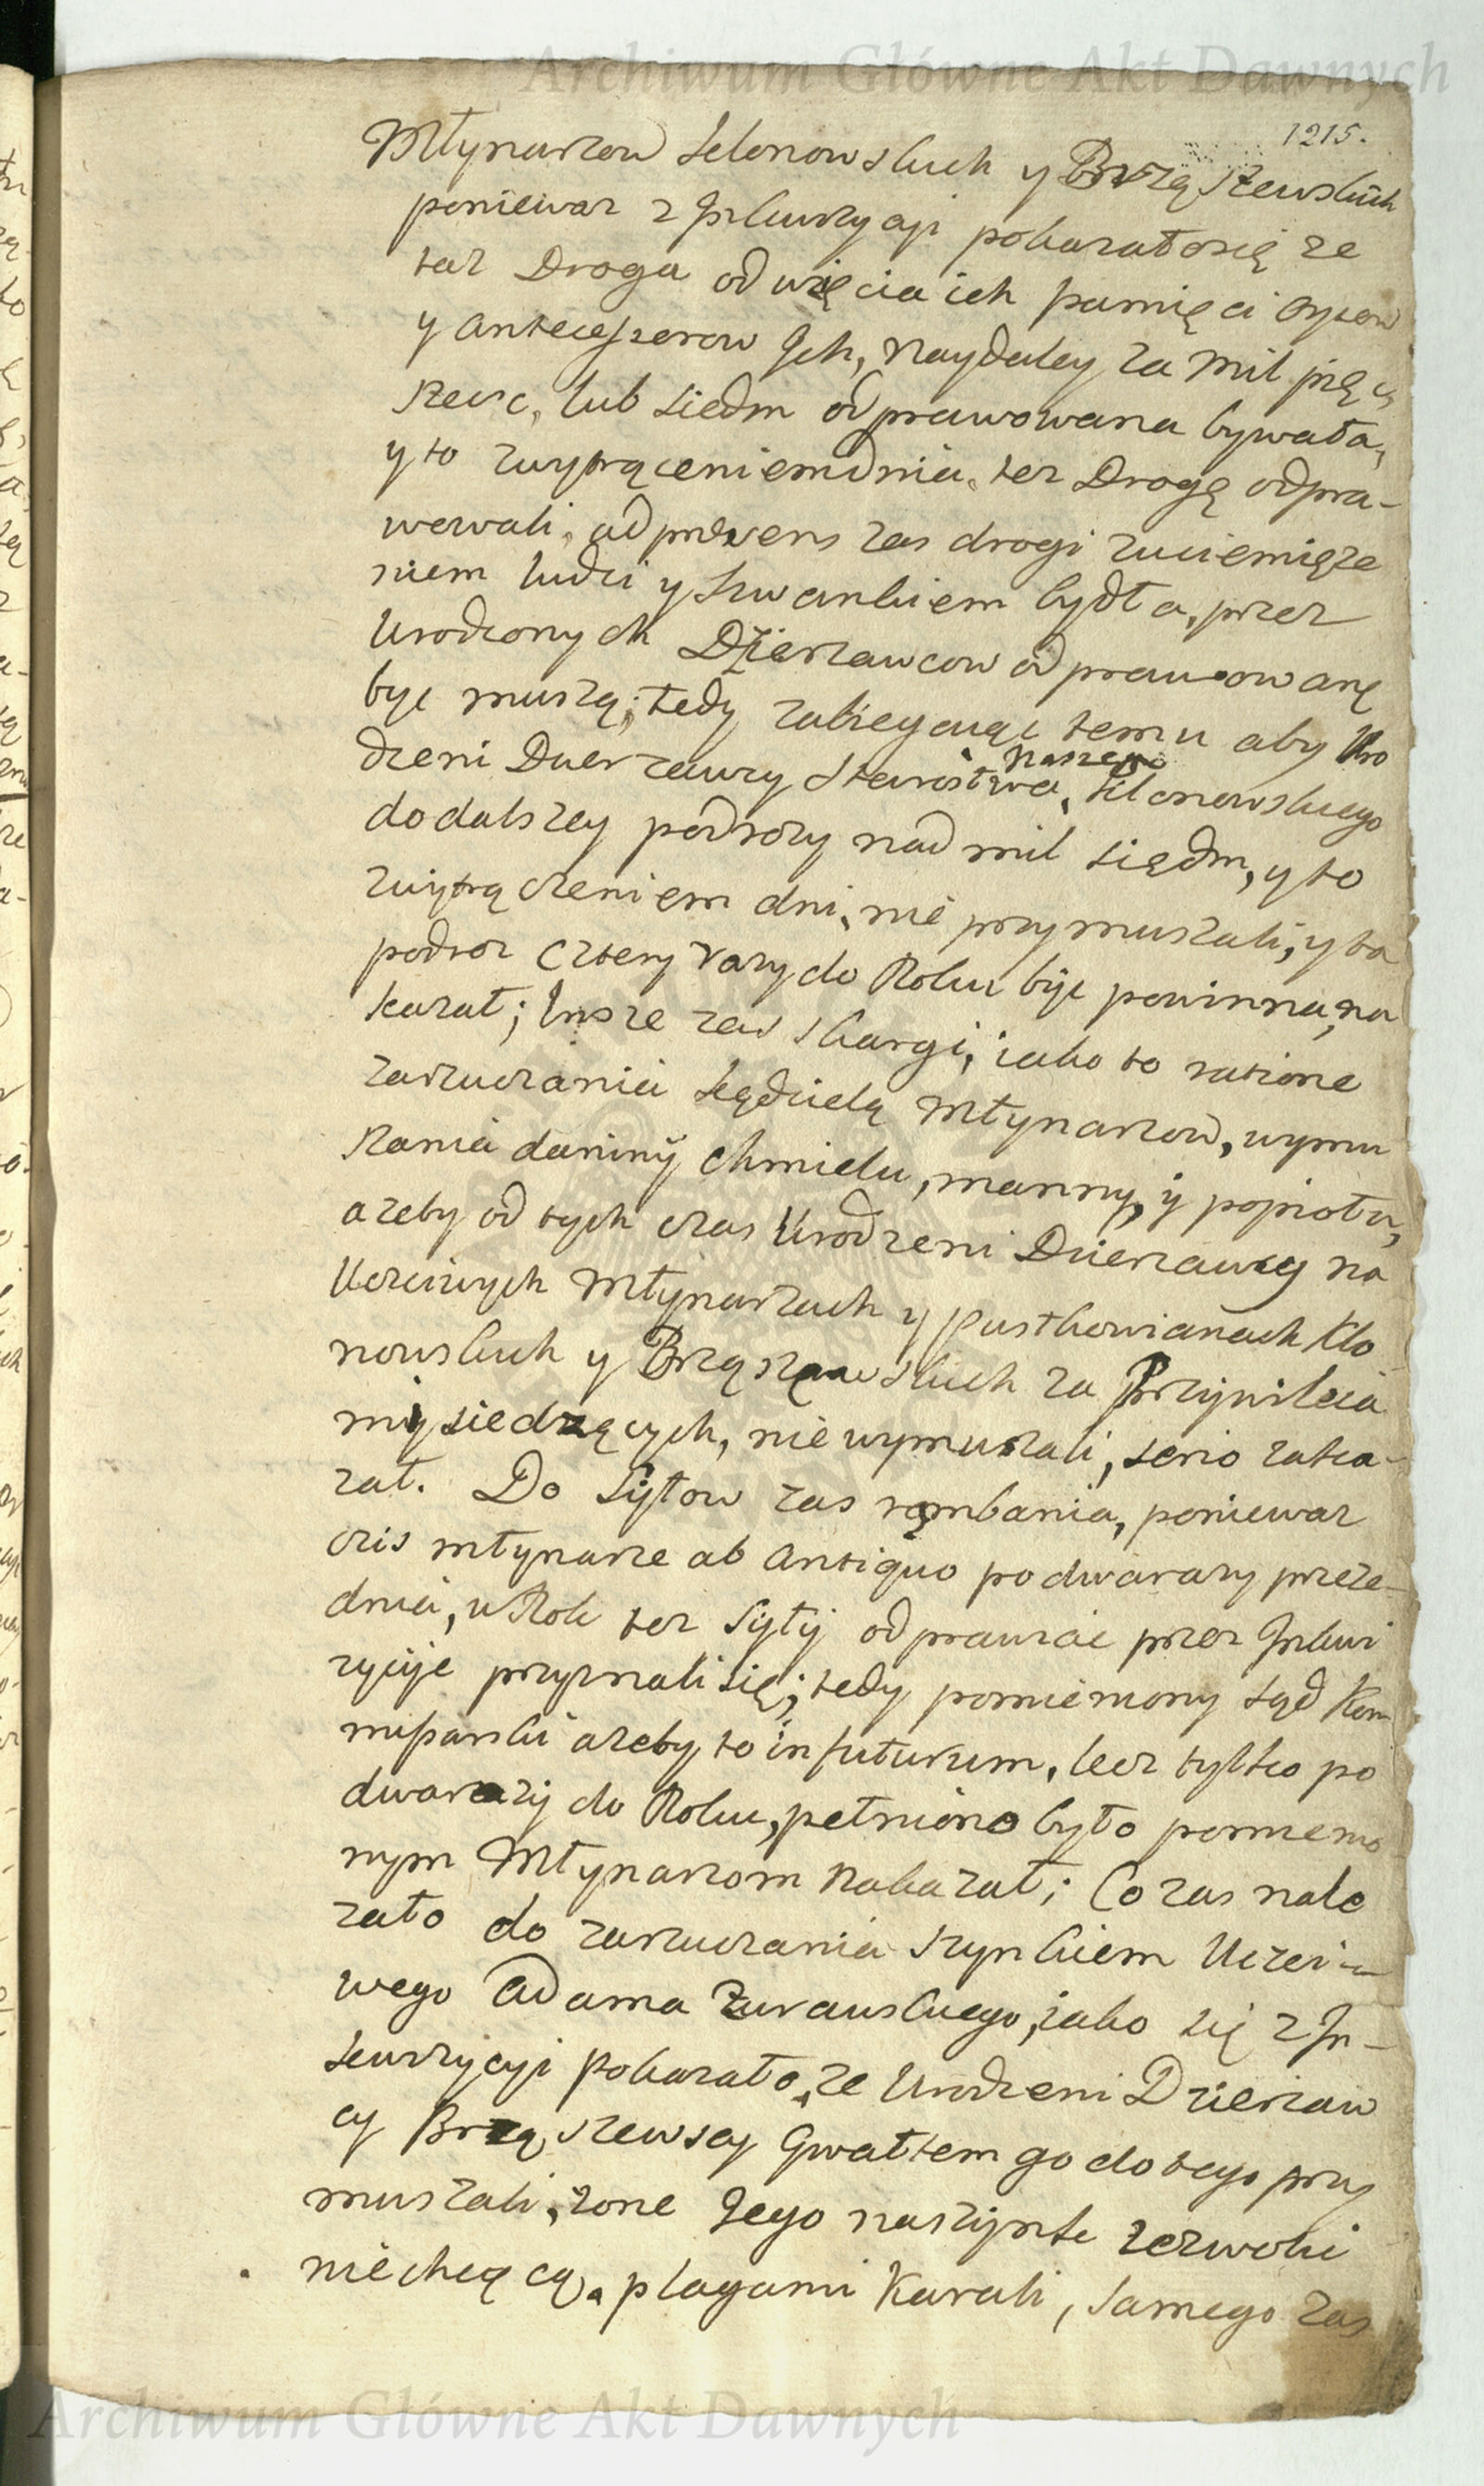 Archiwum Główne Akt Dawnych
1215.
Młynarzow Klonowskich y Brzęszewskich
poniewaz z Jnkwizycyi pokazałosię ze
taz Droga od wzięcia ich pamięci oycow
y antecessorow Jch, naydaley za mil pięc,
szesc, lub siedm odprawowana bywała,
y to zwytrąceniem dnia, tez Drogę odpra-
wowali, ad praesens zas drogi zuciemięze
niem ludzi y szwankiem bydła, przez
Urodzonych Dzierzawcow odprawowane
byc muszą; tedy zabiegaiąc temu aby Uro
dzeni Dzierzawcy Starostwa naszego Klonowskiego
do dalszey podrozy nad mil siedm, y to
zwytrączeniem dni, nie przymuszali, y ta
podroz cztery razy do Roku byc powinna, na
kazał; Insze zas skargi, iako to ratione
zarzucania sledzielą Młynarzow, wymu
szania daniny chmielu, manny, y popiołu,
azeby od tych czas Urodzeni Dzierzawcy na
Uczciwych Młynarzach y Pustkowianach Klo
nowskich y Brząszewskich za Przywileia
mi siedzących, nie wymuszali, serio zaka-
zał. Do Syłow zas rąmbania, poniewaz
ciz młynarze ab antiquo po dwa razy przeze
dnia, w Rok tez Syły odprawiac przez Jnkwi
zycyje przyznali się; tedy pomieniony Sąd Kom
missarski azeby to in futurum, lecz tylko po
dwa razy do Roku, pełniono było pomienio
nym Młynarzom Nakazał; Co zas nale
zało do zarzucania szynkiem Uczci-
wego Adama Zurawskiego, iako się z Jn-
kwizycyi pokazało, ze Urodzeni Dzierzaw
cy Brząszewscy Gwałtem go do tego przy
muszali, zone Jego naszynk zezwolic
niechcącą, plagami Karali, samego zas
Archiwum Główne Akt Dawnych